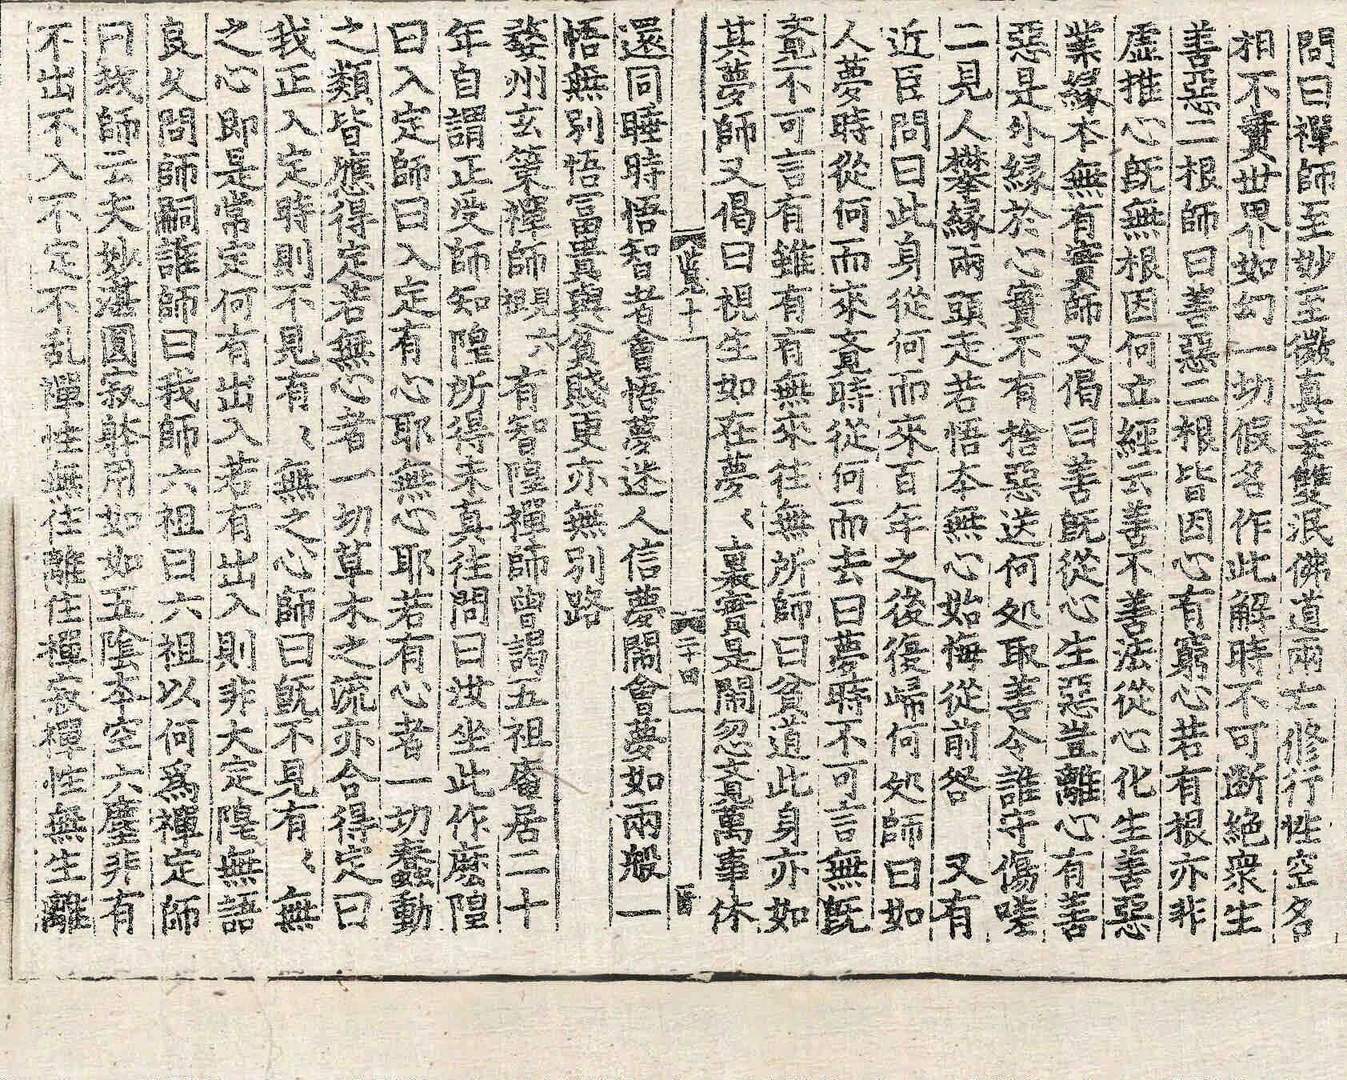 問曰禪師至妙至微真妄雙泯佛道兩亡修行性空名
相不實世界如幻一切假名作此解時不可断絶衆生
善惡二根師曰善惡二根皆因心有窮心若有根亦非
虛推心旣無根因何立經云善不善法從心化生善惡
業緣本無有實師又偈曰善旣從心生惡豈離心有善
惡是外緣於心實不有捨惡送何処取善令誰守傷嗟
二見人攀緣兩頭走若悟本無心始悔從前咎　又有
近臣問曰此身從何而來百年之後復歸何処師曰如
人夢時從何而來覔時從何而去曰夢時不可言無旣
覔不可言有雖有有無來往無所師曰貧道此身亦如
其夢師又偈曰視生如在夢〻裏實是閙忽覔萬事休
覧十　二十四
還同睡時悟智者會悟夢迷人信夢閙會夢如兩般一
悟無別悟富貴與貧賤更亦無別路
婺州玄策禪師覡六　有智隍禪師曾謁五祖庵居二十
年自謂正受師知隍所得未真往問曰汝坐此作麽隍
曰入定師曰入定有心耶無心耶若有心者一切蠢動
之類皆應得定若無心者一切草木之流亦合得定曰
我正入定時則不見有〻無之心師曰旣不見有〻無
之心即是常定何有出入若有出入則非大定隍無語
良久問師嗣誰師曰我師六祖曰六祖以何爲禪定師
曰我師云夫妙湛圓寂躰用如如五陰本空六塵非有
不出不入不定不乱禪性無住離住禪寂禪性無生離